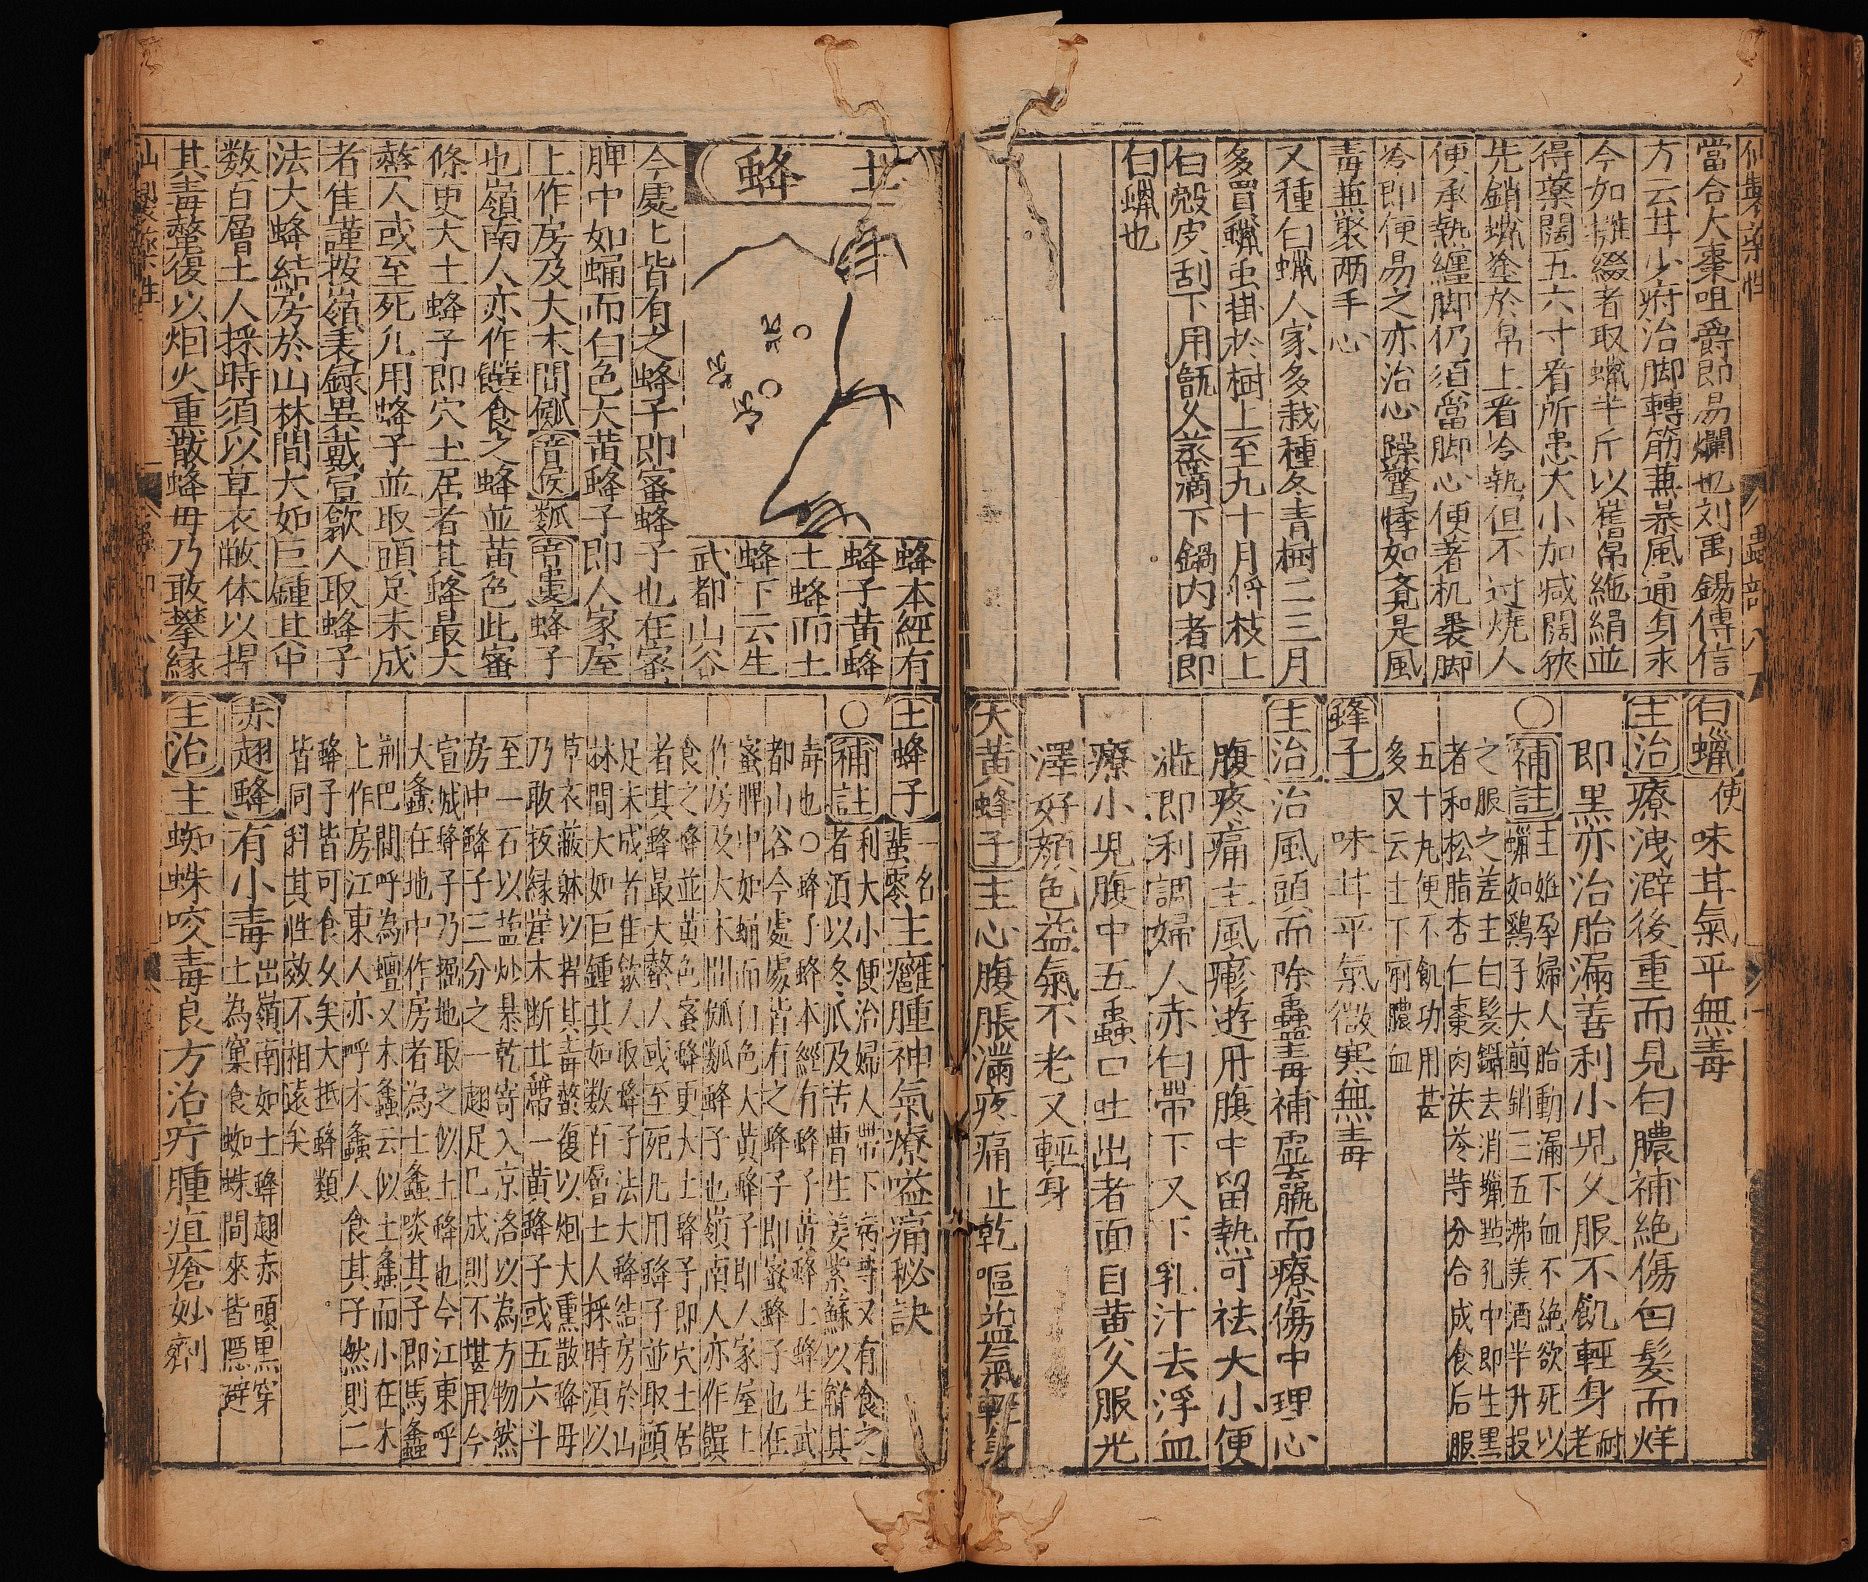 仙製藥性 蟲部 八
當合大棗咀爵即易爛也刘禹錫傳信
方云甘少府治脚轉筋兼暴風通身氷
今如攤綴者取蠟半斤以舊帛絁絹並
得藥闊五六寸看所患大小加减闊狹
先銷蠟塗於帛上看冷熱但不过燒人
便承熱纏脚仍須當脚心便著机褁脚
冷即便易之亦治心躁驚悸如竟是風
毒兼褁两手心
又種白蠟人家多栽種冬青樹二三月
多買蠟虫掛於樹上至九十月將枝上
白殼皮刮下用甑久蒸滴下鍋内者即
白蠟也
白蠟使味甘氣平無毒
主治療洩澼後重而見白膿補絶傷白髮而烊
即黑亦治胎漏善利小児久服不飢輕身耐老
○補註王姙孕婦人胎動漏下血不絶欲死以
蠟如鷄子大煎銷三五沸美酒半升投
之服之差主白髮鑷去消蠟㸃孔中即生黑
者和松脂杏仁棗肉茯苓等分合成食后服
五十九便不飢功用甚
多又云主下痢膿血
蜂子 味甘平氣微寒無毒
主治治風頭而除蠱毒補虚羸而療傷中理心
腹疼痛主風瘮遊丹腹中留熱可祛大小便
澁即利調婦人赤白帶下又下乳汁去浮血
療小児腹中五蟲口吐出者面目黄久服光
澤好顔色益氣不老又輕身
大黄蜂子主心腹脹滿疼痛止乾嘔益氣輕身
土蜂
蜂本經有
蜂子黄蜂
土蜂而土
蜂下云生
武都山谷
今處〻皆有之蜂子即蜜蜂子也在蜜
脾中如蛹而白色大黄蜂子即人家屋
上作房及大木間㼋音侯㼐音婁蜂子
也嶺南人亦作饌食之蜂並黄色此蜜
條更大土蜂子即穴土居者其蜂最大
螫人或至死凡用蜂子並取頭足未成
者佳謹按嶺表録異戴宣歙人取蜂子
法大蜂結房於山林間大如巨鍾其中
数百層土人採時須以草衣敝体以捍
其毒螫復以烟火熏散蜂母乃敢攀縁
仙製藥性
土蜂子一名蜚零主癰腫神氣療嗌痛秘訣
○補註利大小便治婦人帶下病等又有食之
者湏以冬瓜及苦曹生姜紫蘇以觧其
毒也○蜂子蜂本經有蜂子黄蜂土蜂生武
都山谷今處處皆有之蜂子即蜜蜂子也在
蜜脾中如蛹而白色大黄蜂子即人家屋上
作房及大木間㼋㼐蜂子也嶺南人亦作饌
食之蜂並黄色蜜蜂更大土蜂子即穴土居
者其蜂最大螫人或至死凡用蜂子並取頭
足未成者佳歙人取蜂子法大蜂結房於山
林間大如巨鍾其如数百層士人採時須以
草衣蔽躰以捍其毒螫復以烟大熏散蜂母
乃敢扳縁崖木断其蔕一黄蜂子或五六斗
至一石以盐炒暴乾寄入京洛以為方物然
房中蜂子三分之一翅足已成則不堪用今
宣城蜂子乃掘地取之似土蜂也今江東呼
大螽在地中作房者為土螽啖其子即馬螽
荆巴間呼為蟺又木螽云似土螽而小在木
上作房江東人亦呼木螽人食其子然則二
蜂子皆可食久矣大抵蜂類
皆同科其性效不相遠矣
赤翅蜂有小毒出嶺南如土蜂翅赤頭黒穿
土為窠食蜘蛛間來皆隱避
主治主蜘蛛咬毒良方治疔腫疽瘡妙劑